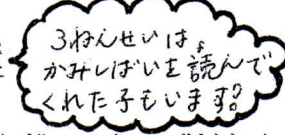 3ねんせいは、
かみしばいを読んで
くれた子もいます。